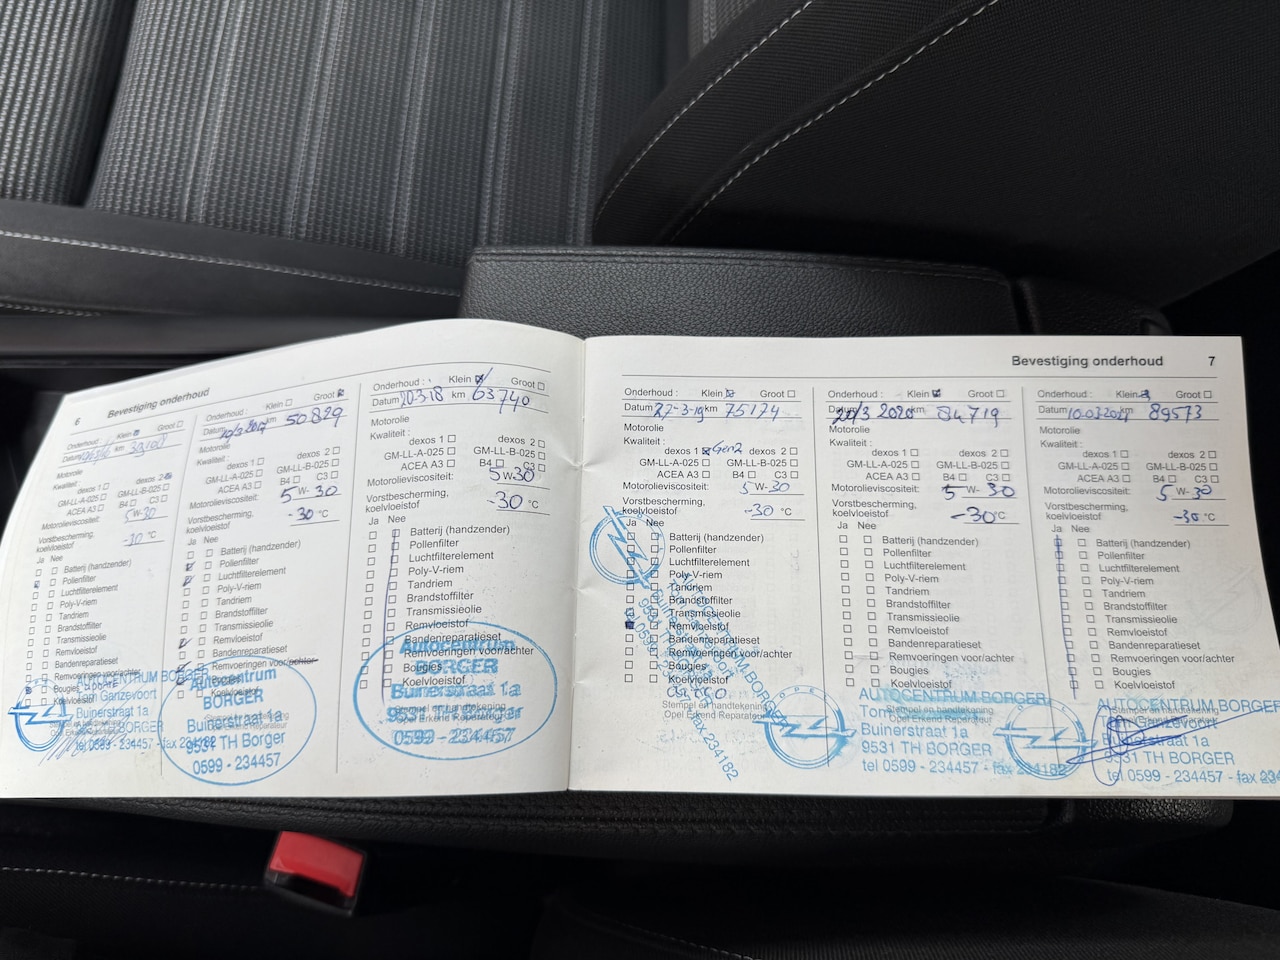 6 Bevestiging onderhoud
Onderhoud : Klein Groot
Datum km
Motorolie
Kwaliteit :
dexos 1 dexos 2
GM-LL-A-025 GM-LL-B-025
ACEA A3 B4 C3
Motorolieviscositeit: 5W-30
Vorstbescherming,
koelvloeistof -30 °C
Ja Nee
Batterij (handzender)
Pollenfilter
Luchtfilterelement
Poly-V-riem
Tandriem
Brandstoffilter
Transmissieolie
Remvloeistof
Bandenreparatieset
Remvoeringen voor/achter
Bougies
Koelvloeistof
AUTOCENTRUM BORGER
Tom Ganzevoort
Buinerstraat 1a
BORGER
tel 0599 - 234457 - fax 234182
Onderhoud : Klein Groot
Datum 10/3 2017 km 50829
Motorolie
Kwaliteit :
dexos 1 dexos 2
GM-LL-A-025 GM-LL-B-025
ACEA A3 B4 C3
Motorolieviscositeit: 5W-30
Vorstbescherming,
koelvloeistof -30 °C
Ja Nee
Batterij (handzender)
Pollenfilter
Luchtfilterelement
Poly-V-riem
Tandriem
Brandstoffilter
Transmissieolie
Remvloeistof
Bandenreparatieset
Remvoeringen voor/achter
Bougies
Koelvloeistof
Autocentrum
BORGER
Buinerstraat 1a
9531 TH Borger
0599 - 234457
Onderhoud : Klein Groot
Datum 20-3-18 km 63740
Motorolie
Kwaliteit :
dexos 1 dexos 2
GM-LL-A-025 GM-LL-B-025
ACEA A3 B4 C3
Motorolieviscositeit: 5W-30
Vorstbescherming,
koelvloeistof -30 °C
Ja Nee
Batterij (handzender)
Pollenfilter
Luchtfilterelement
Poly-V-riem
Tandriem
Brandstoffilter
Transmissieolie
Remvloeistof
Bandenreparatieset
Remvoeringen voor/achter
Bougies
Koelvloeistof
Stempel en handtekening
Opel Erkend Reparateur
Autocentrum
BORGER
Buinerstraat 1a
9531 TH Borger
0599 - 234457
Bevestiging onderhoud 7
Onderhoud : Klein Groot
Datum 27-3-19 km 75174
Motorolie
Kwaliteit :
dexos 1 Gen2 dexos 2
GM-LL-A-025 GM-LL-B-025
ACEA A3 B4 C3
Motorolieviscositeit: 5W-30
Vorstbescherming,
koelvloeistof -30 °C
Ja Nee
Batterij (handzender)
Pollenfilter
Luchtfilterelement
Poly-V-riem
Tandriem
Brandstoffilter
Transmissieolie
Remvloeistof
Bandenreparatieset
Remvoeringen voor/achter
Bougies
Koelvloeistof
Stempel en handtekening
Opel Erkend Reparateur
OPEL
Onderhoud : Klein Groot
Datum 20/3 2020 km 84719
Motorolie
Kwaliteit :
dexos 1 dexos 2
GM-LL-A-025 GM-LL-B-025
ACEA A3 B4 C3
Motorolieviscositeit: 5W-30
Vorstbescherming,
koelvloeistof -30 °C
Ja Nee
Batterij (handzender)
Pollenfilter
Luchtfilterelement
Poly-V-riem
Tandriem
Brandstoffilter
Transmissieolie
Remvloeistof
Bandenreparatieset
Remvoeringen voor/achter
Bougies
Koelvloeistof
Stempel en handtekening
Opel Erkend Reparateur
AUTOCENTRUM BORGER
Buinerstraat 1a
9531 TH BORGER
tel 0599 - 234457 - fax 234182
Onderhoud : Klein Groot
Datum 10-03-2021 km 89573
Motorolie
Kwaliteit :
dexos 1 dexos 2
GM-LL-A-025 GM-LL-B-025
ACEA A3 B4 C3
Motorolieviscositeit: 5W-30
Vorstbescherming,
koelvloeistof -30 °C
Ja Nee
Batterij (handzender)
Pollenfilter
Luchtfilterelement
Poly-V-riem
Tandriem
Brandstoffilter
Transmissieolie
Remvloeistof
Bandenreparatieset
Remvoeringen voor/achter
Bougies
Koelvloeistof
AUTOCENTRUM BORGER
Tom Ganzevoort
Buinerstraat 1a
9531 TH BORGER
tel 0599 - 234457 - fax